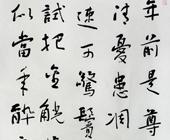 年前是尊
清憂患凋
速可驚鬢
試把金觥
似當年醉